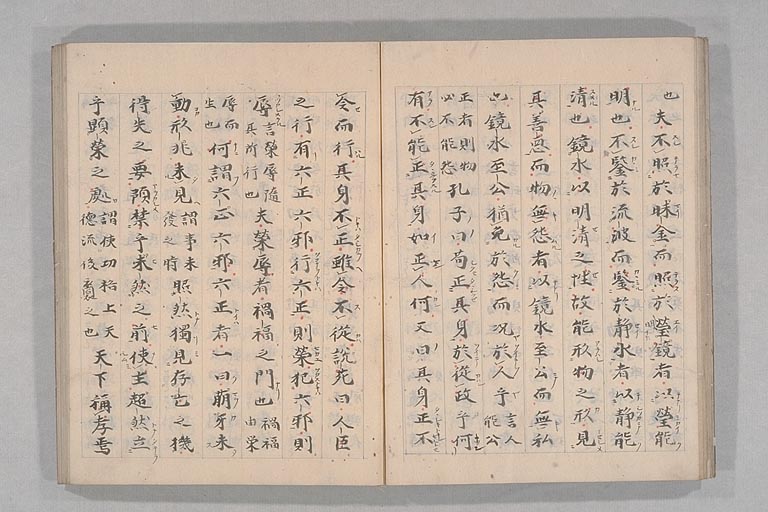 也夫不照於昧金而照於瑩鏡者以瑩能
明也不鑒於流波而鑒於静水者以静能
清也鏡水以明清之性故能形物之形見
其善惡而物無怨者以鏡水至公而無私
也鏡水至公猶免於怨而況於人乎言人能公
正有則物必不能怨孔子曰苟正其身於從政乎何
有不能正其身如正人何又曰其身正不
令而行其身不正雖令不從說苑曰人臣
之行有六正六邪行六正則榮犯六邪則
辱言榮辱隨其所行也夫榮辱者禍福之門也禍福由栄
辱而生也何謂六正六邪六正者一曰萌牙未
動形兆未見謂事未發之時照然獨見存亡之機
得失之要預禁乎未然之前使主超然立
乎顯榮之處謂使功格上天德流後胤之也天下稱孝焉